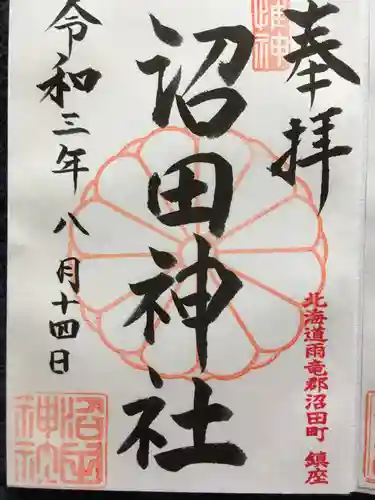 奉拝
北海道雨竜郡沼田町 鎮座
沼田神社
令和三年八月十四日
沼田神社